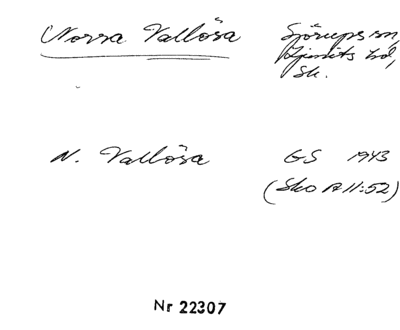 Norra Vallösa Sjörups sn,
Ljunits hd,
Sk.
N. Vallösa GS 1943
(Sko A 11:52)
Nr 22307